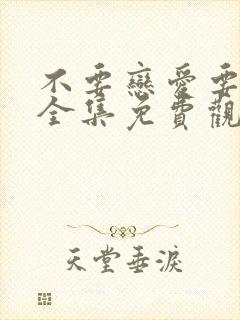 不要戀愛要
全集免費觀
天堂垂淚